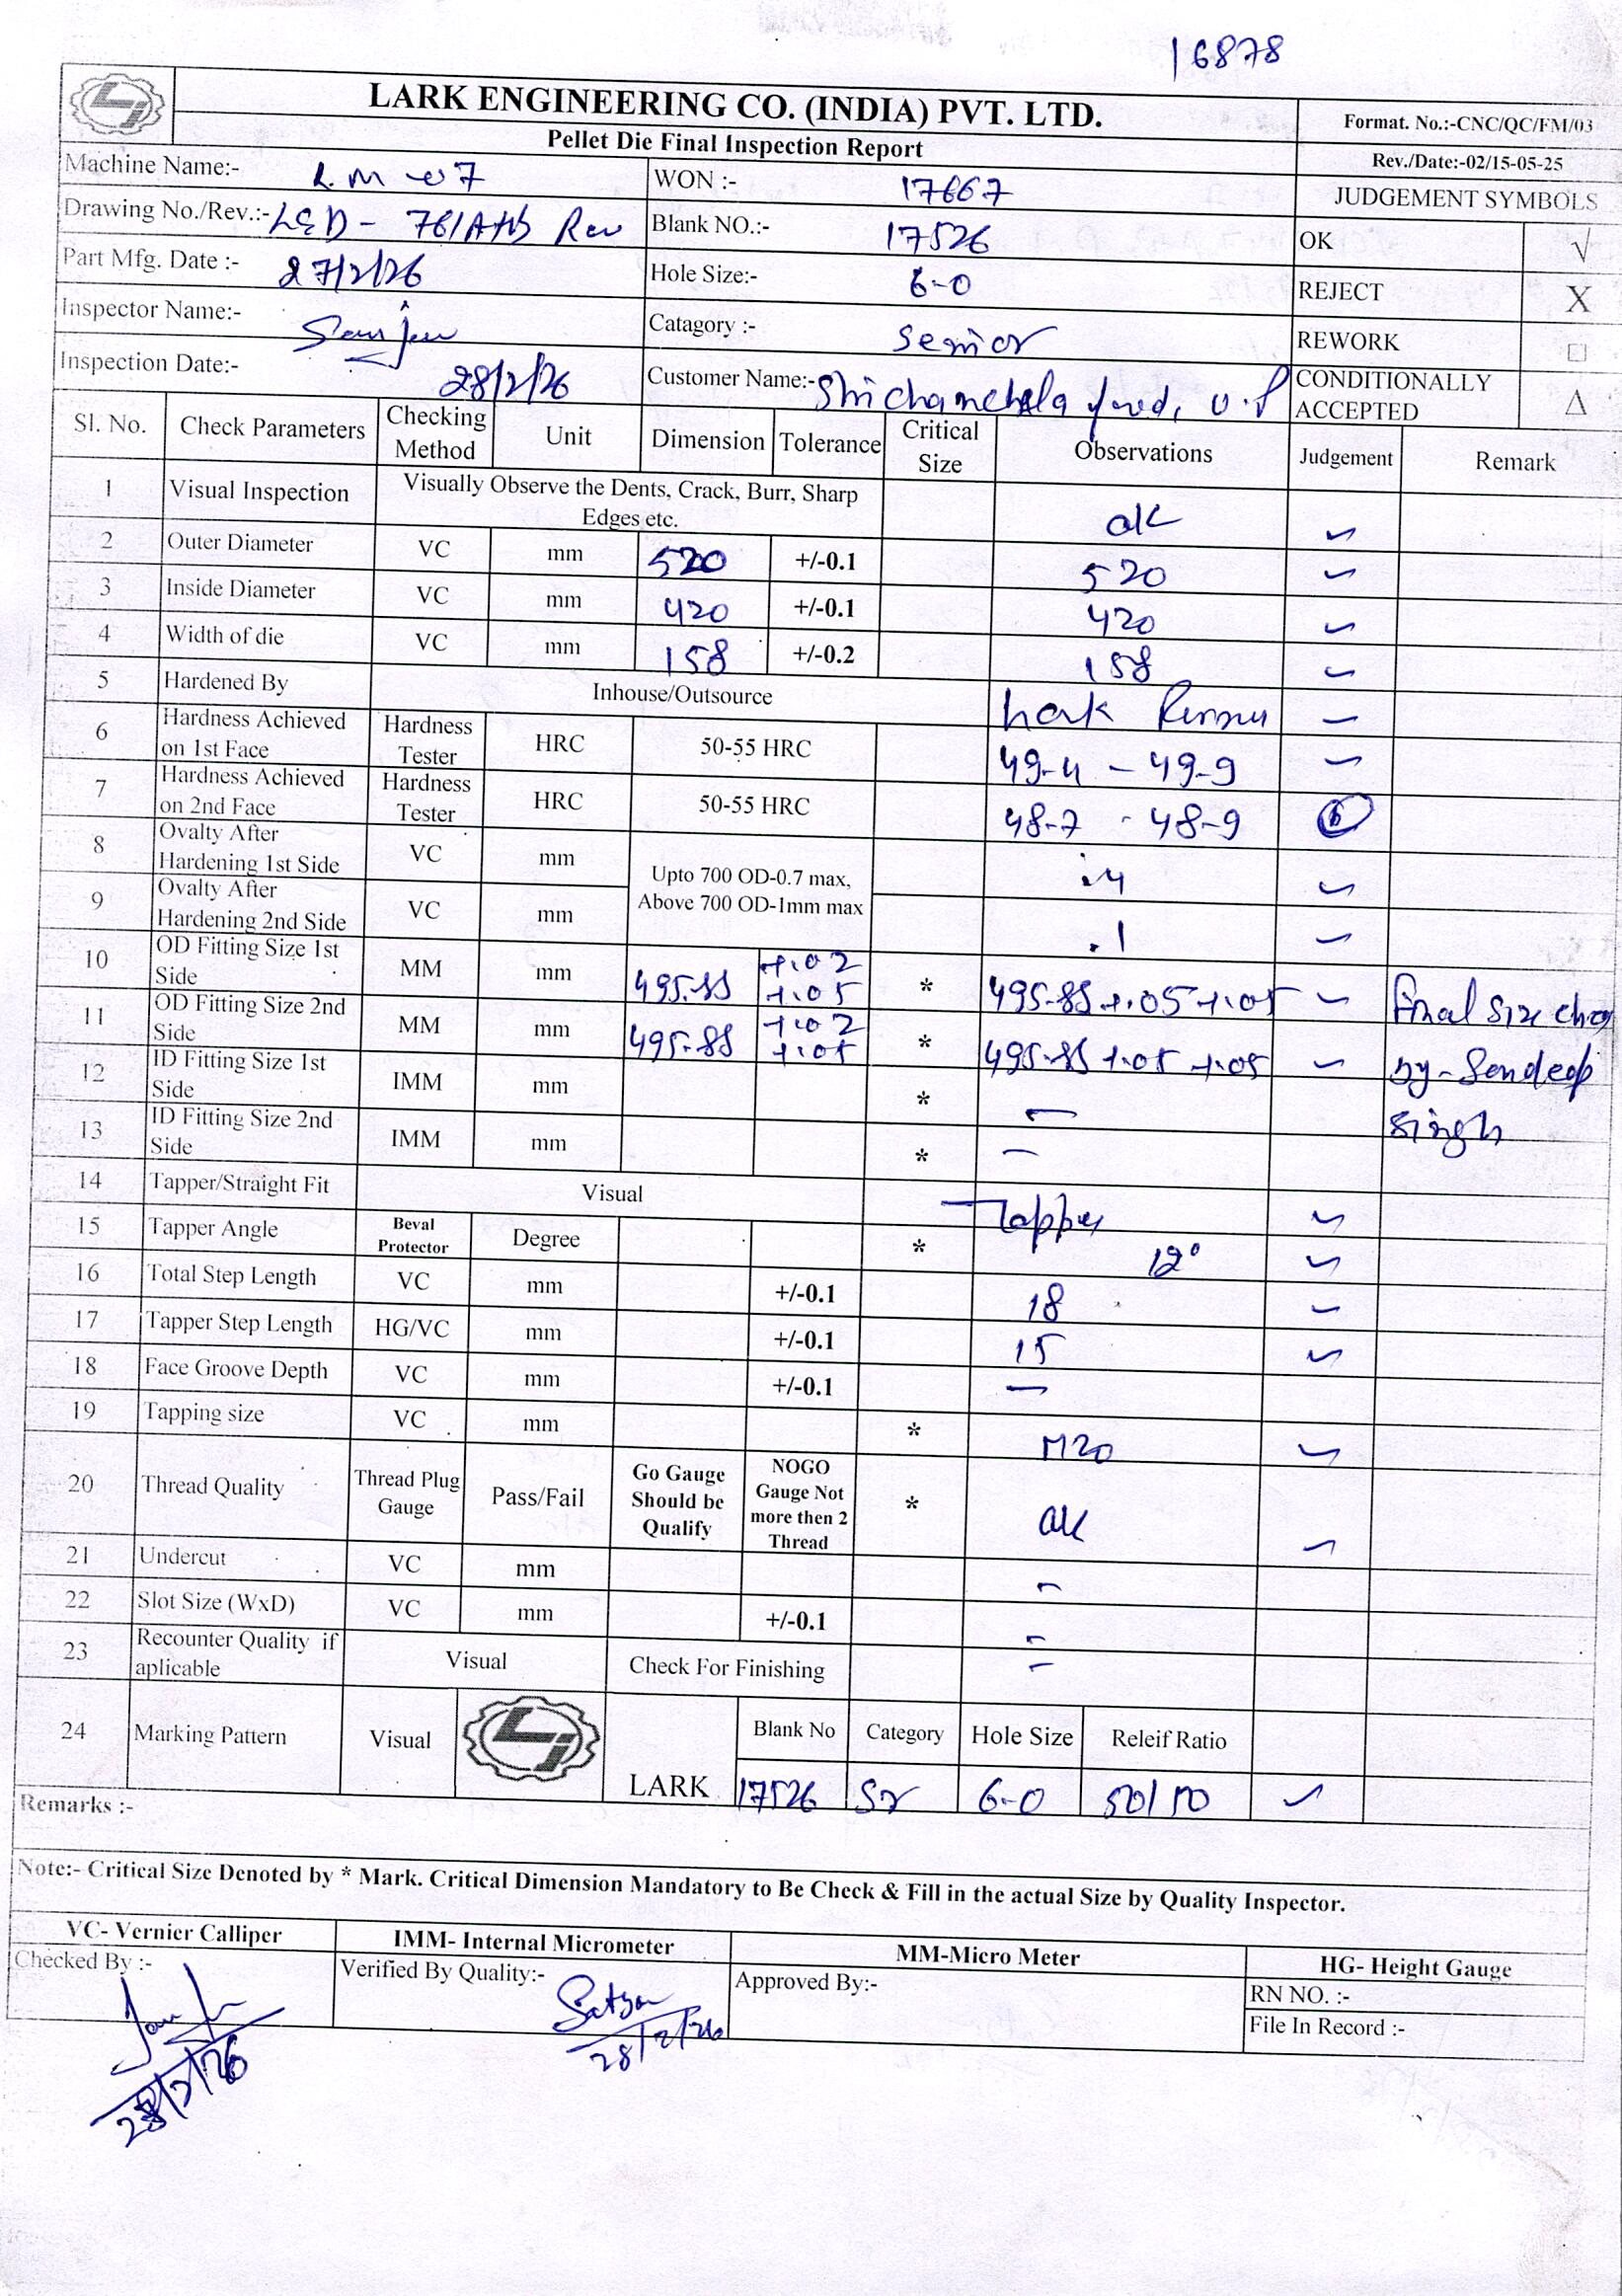 16878
LARK ENGINEERING CO. (INDIA) PVT. LTD.
Pellet Die Final Inspection Report
Format. No.:-CNC/QC/FM/03
Rev./Date:-02/15-05-25
Machine Name:- WON :- 17667
JUDGEMENT SYMBOLS
Drawing No./Rev.:- Rev Blank NO.:- 17526
OK √
Part Mfg. Date :- 27/2/26 Hole Size:- 6-0
REJECT X
Inspector Name:- Sanjeev Catagory :- Senior
REWORK □
Inspection Date:- 28/2/26 Customer Name:- U.P
CONDITIONALLY ACCEPTED △
Sl. No. Check Parameters Checking Method Unit Dimension Tolerance Critical Size Observations Judgement Remark
1 Visual Inspection Visually Observe the Dents, Crack, Burr, Sharp Edges etc. ok
2 Outer Diameter VC mm 520 +/-0.1 520
3 Inside Diameter VC mm 420 +/-0.1 420
4 Width of die VC mm 158 +/-0.2 158
5 Hardened By Inhouse/Outsource
6 Hardness Achieved on 1st Face Hardness Tester HRC 50-55 HRC 49-4 - 49-9
7 Hardness Achieved on 2nd Face Hardness Tester HRC 50-55 HRC 48-7 - 48-9
8 Ovalty After Hardening 1st Side VC mm Upto 700 OD-0.7 max, Above 700 OD-1mm max .4
9 Ovalty After Hardening 2nd Side VC mm .1
10 OD Fitting Size 1st Side MM mm 495.85 +.02 +.05 * 495-85 +.05 +.05 final size
11 OD Fitting Size 2nd Side MM mm 495-85 +.02 +.05 * 495-85 +.05 +.05 by - Sandeep
12 ID Fitting Size 1st Side IMM mm * - Singh
13 ID Fitting Size 2nd Side IMM mm * -
14 Tapper/Straight Fit Visual Tapper
15 Tapper Angle Beval Protector Degree * 12°
16 Total Step Length VC mm +/-0.1 18
17 Tapper Step Length HG/VC mm +/-0.1 15
18 Face Groove Depth VC mm +/-0.1 -
19 Tapping size VC mm * M20
20 Thread Quality Thread Plug Gauge Pass/Fail Go Gauge Should be Qualify NOGO Gauge Not more then 2 Thread * ok
21 Undercut VC mm -
22 Slot Size (WxD) VC mm +/-0.1 -
23 Recounter Quality if aplicable Visual Check For Finishing -
24 Marking Pattern Visual LARK Blank No Category Hole Size Releif Ratio
17526 Sr 6-0 50/50
Remarks :-
Note:- Critical Size Denoted by * Mark. Critical Dimension Mandatory to Be Check & Fill in the actual Size by Quality Inspector.
VC- Vernier Calliper IMM- Internal Micrometer MM-Micro Meter HG- Height Gauge
Checked By :- Verified By Quality:- Approved By:- RN NO. :-
File In Record :-
28/2/26 28/2/26